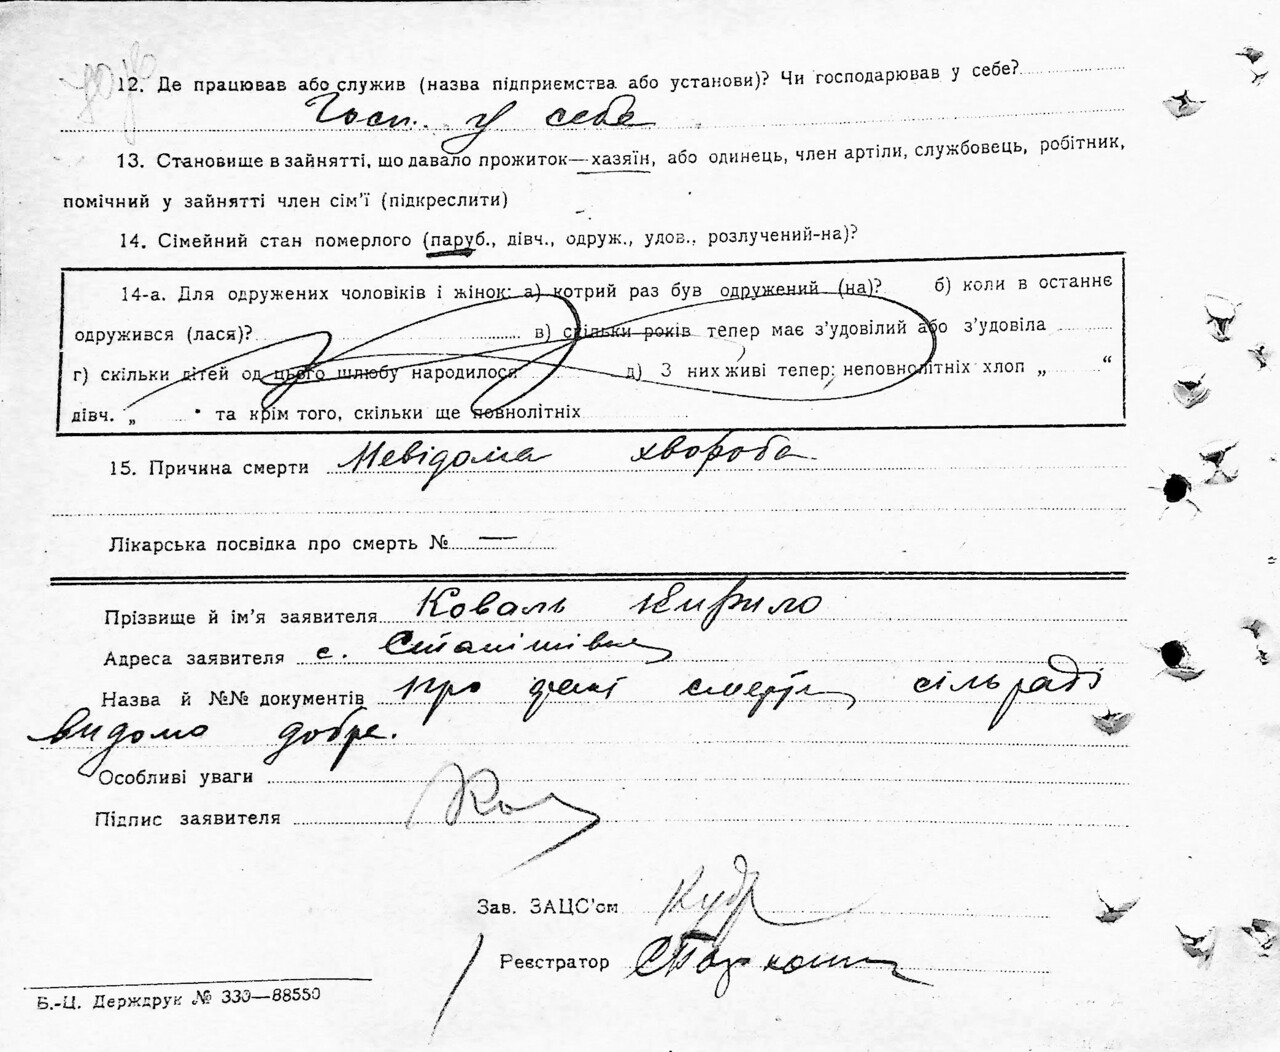 12. Де працював або служив (назва підприємства або установи)? Чи господарював у себе?
Госп. у себе
13. Становище в зайнятті, що давало прожиток—хазяїн, або одинець, член артіли, службовець, робітник,
помічний у зайнятті член сім’ї (підкреслити)
14. Сімейний стан померлого (паруб., дівч., одруж., удов., розлучений-на)?
14-а. Для одружених чоловіків і жінок: а) котрий раз був одружений (на)? б) коли в останнє
одружився (лася)? в) скільки років тепер має з’удовілий або з’удовіла
г) скільки дітей од цього шлюбу народилося д) З них живі тепер: неповнолітніх хлоп „ “
дівч. „ “ та крім того, скільки ще повнолітніх
15. Причина смерти Невідома хвороба
Лікарська посвідка про смерть № —
Прізвище й ім’я заявителя Коваль Кирило
Адреса заявителя с.
Назва й №№ документів про смерть сільраді
видомо добре.
Особливі уваги
Підпис заявителя Ков
Зав. ЗАЦС’ом
Реєстратор
Б.-Ц. Держдрук № 330—88550